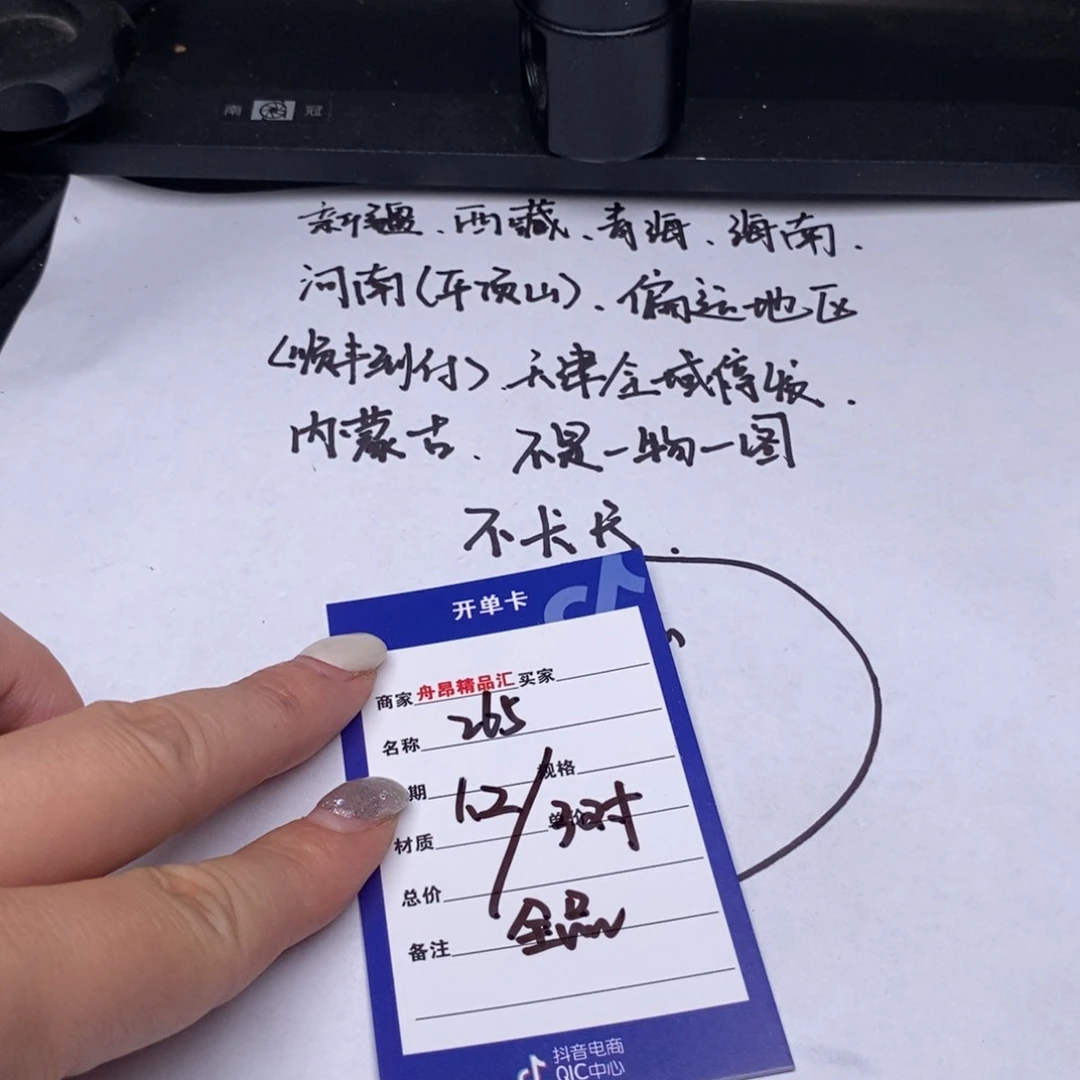 南 冠
新疆、西藏、青海、海南.
河南(平顶山)、偏远地区
〈顺丰到付〉、天津全域停发.
内蒙古、不是一物一图
不卡
开单卡
商家 舟昂精品汇 买家
名称 265
期 规格
材质 单价
1.2/32寸
总价
备注 全品
抖音电商
QIC中心